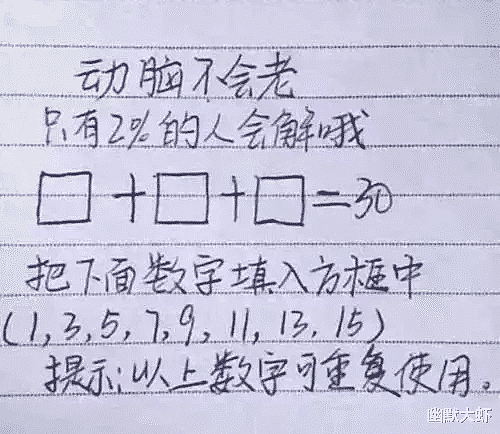 动脑不会老
只有2%的人会解哦
□+□+□=30
把下面数字填入方框中
(1,3,5,7,9,11,13,15)
提示:以上数字可重复使用。
幽默大虾